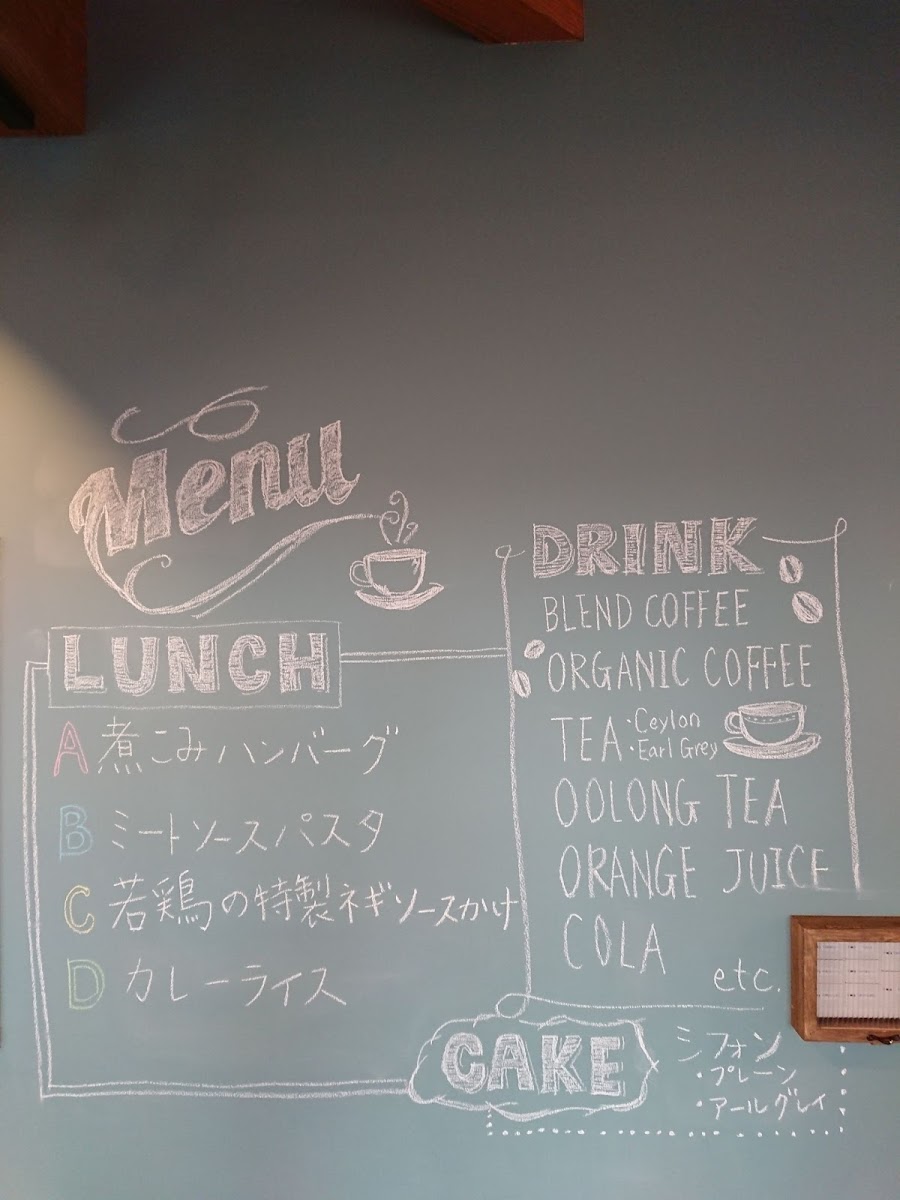 Menu
LUNCH
A 煮こみハンバーグ
B ミートソースパスタ
C 若鶏の特製ネギソースかけ
D カレーライス
DRINK
BLEND COFFEE
ORGANIC COFFEE
TEA ・Ceylon
・Earl Grey
OOLONG TEA
ORANGE JUICE
COLA
etc.
CAKE
シフォン
・プレーン
・アールグレイ